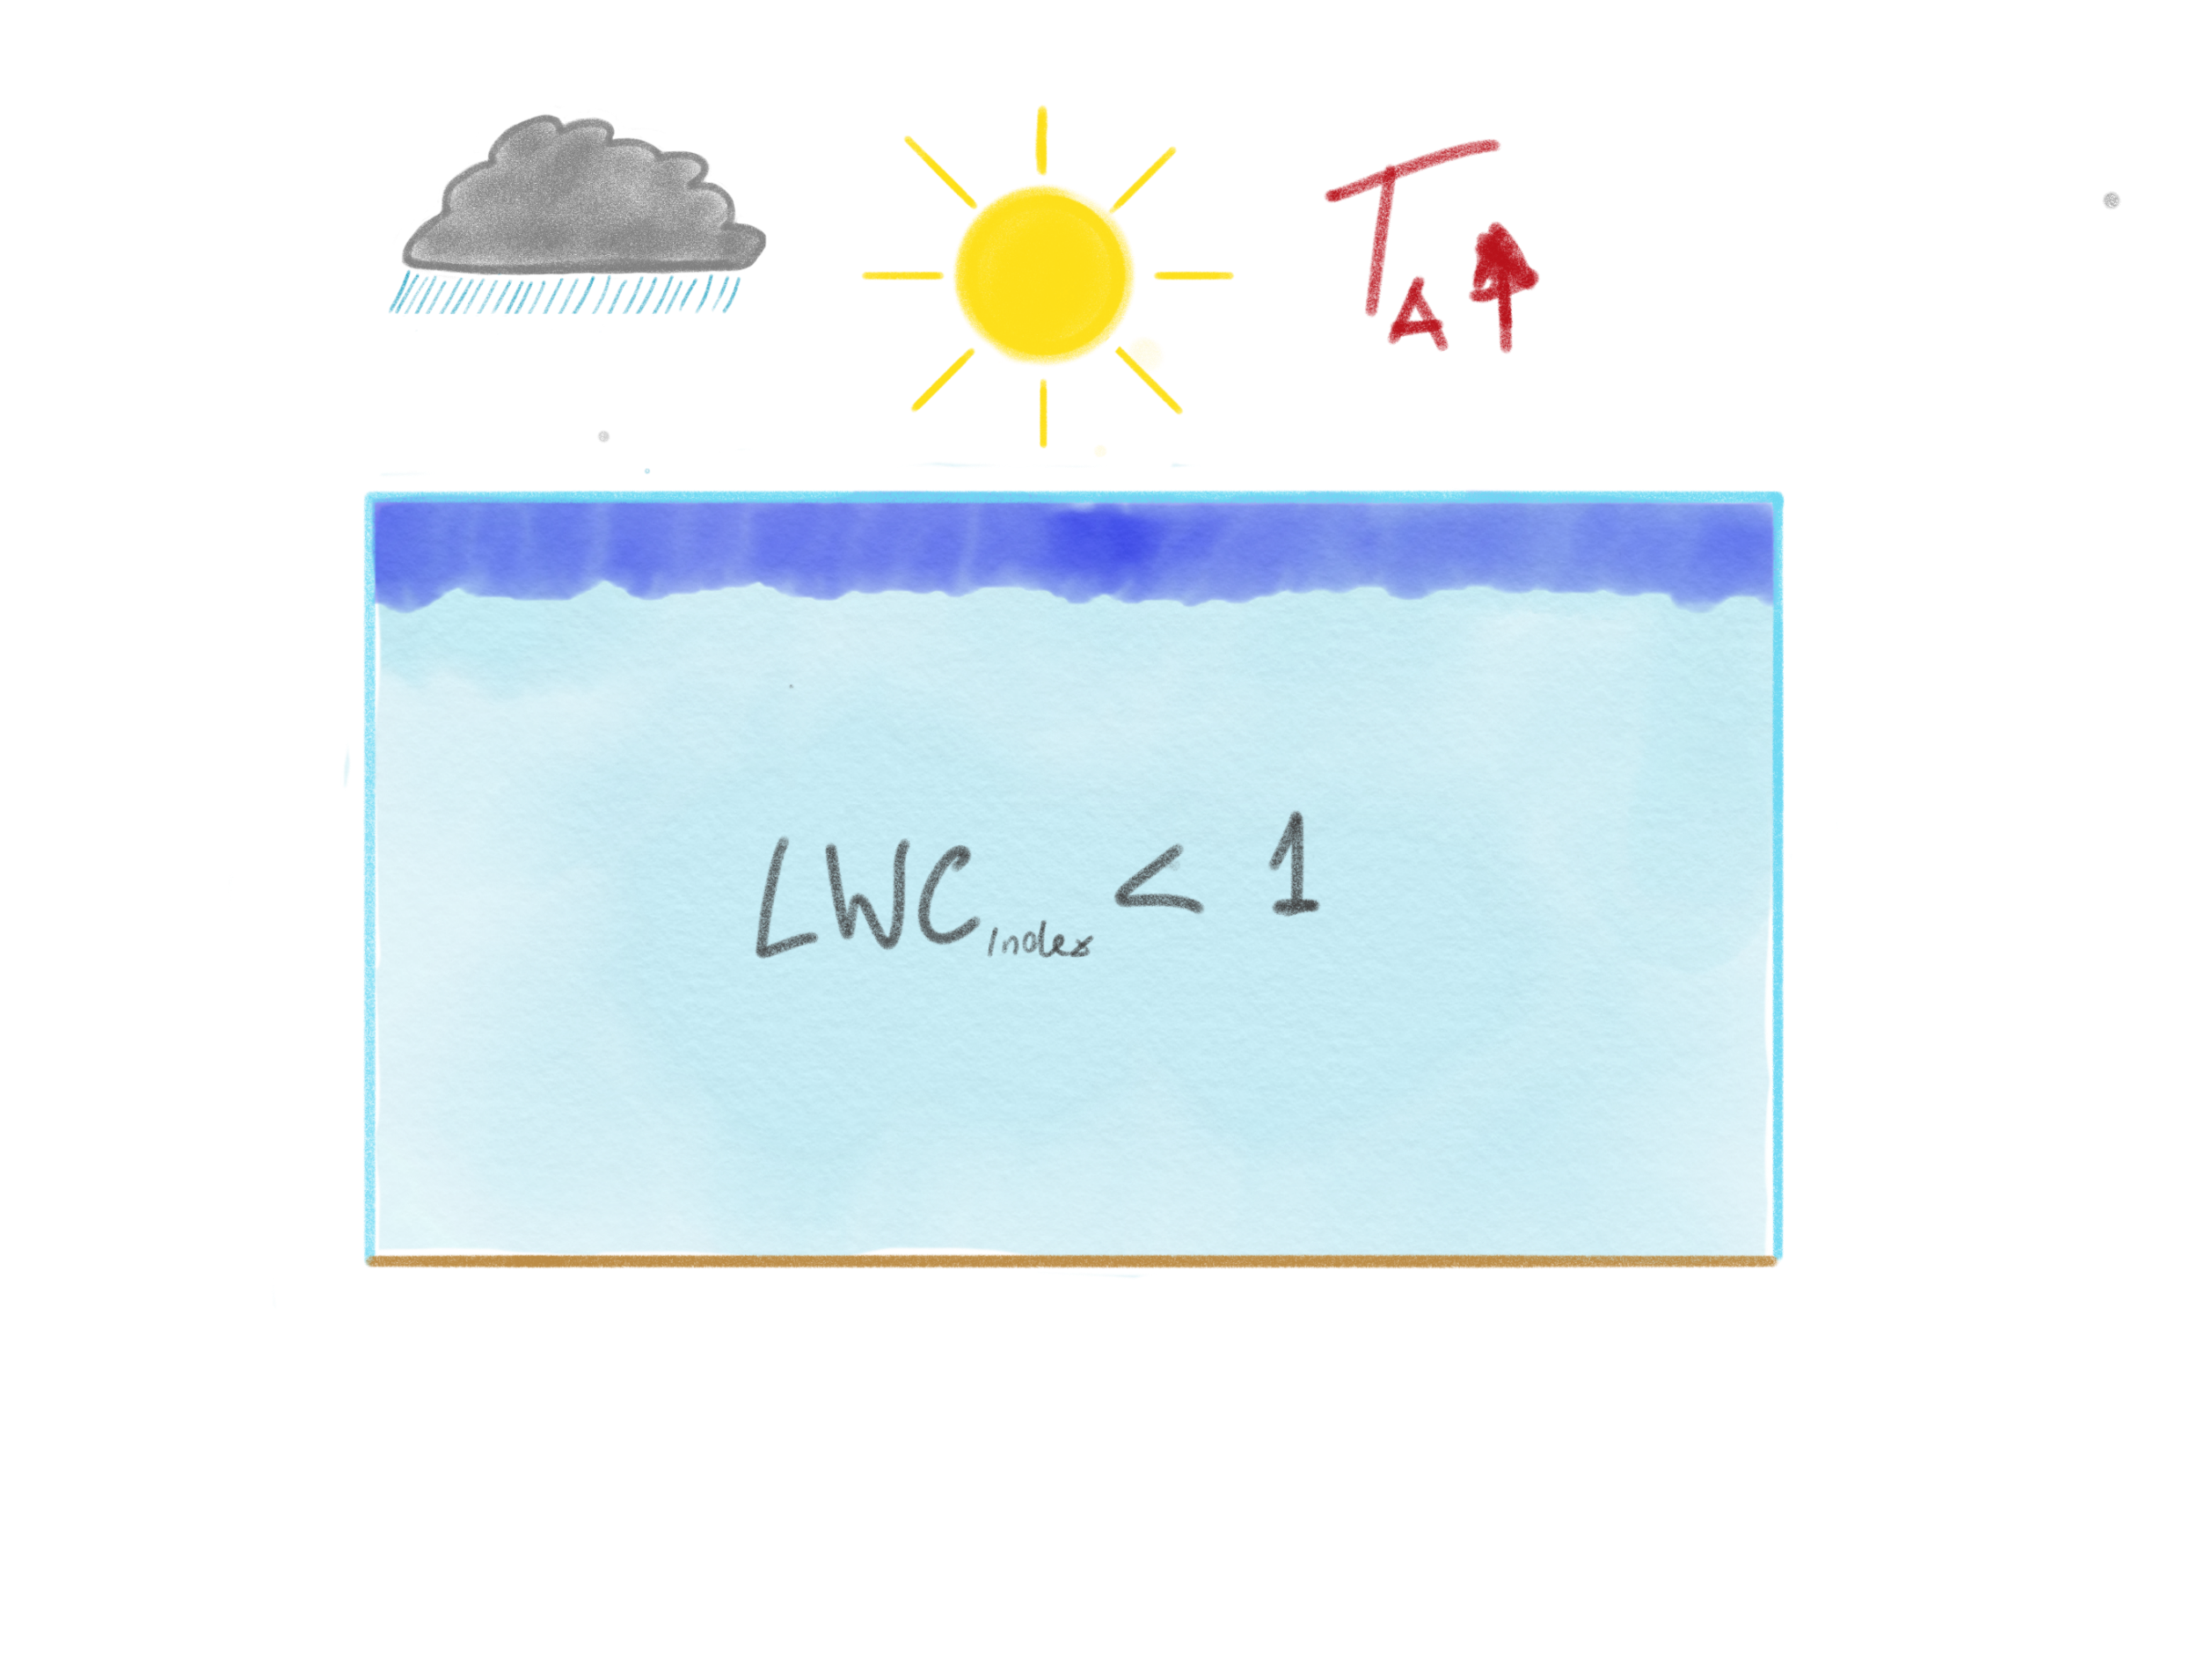 TA
LWCindex < 1